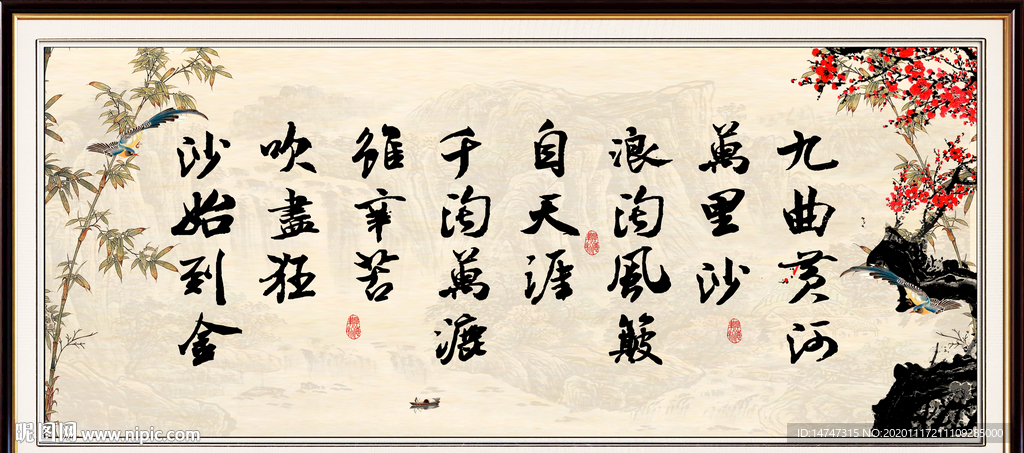 九曲黄河
萬里沙
浪淘風簸
自天涯
千淘萬漉
雖辛苦
吹盡狂
沙始到金
昵图网 www.nipic.com
ID:14747315 NO:20201117211109285000